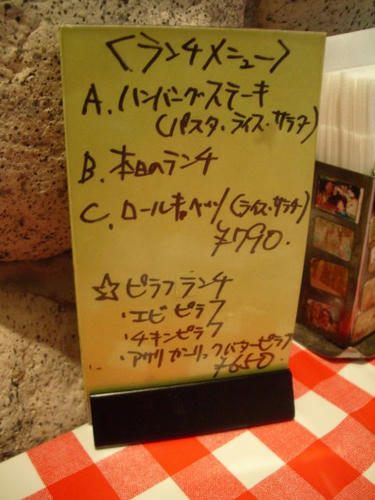 〈ランチメニュー〉
A. ハンバーグステーキ
(パスタ・ライス・サラダ)
B. 本日のランチ
C. ロールキャベツ (ライス・サラダ)
¥790.
☆ピラフランチ
・エビピラフ
・チキンピラフ
・アサリガーリックバターピラフ
¥650.